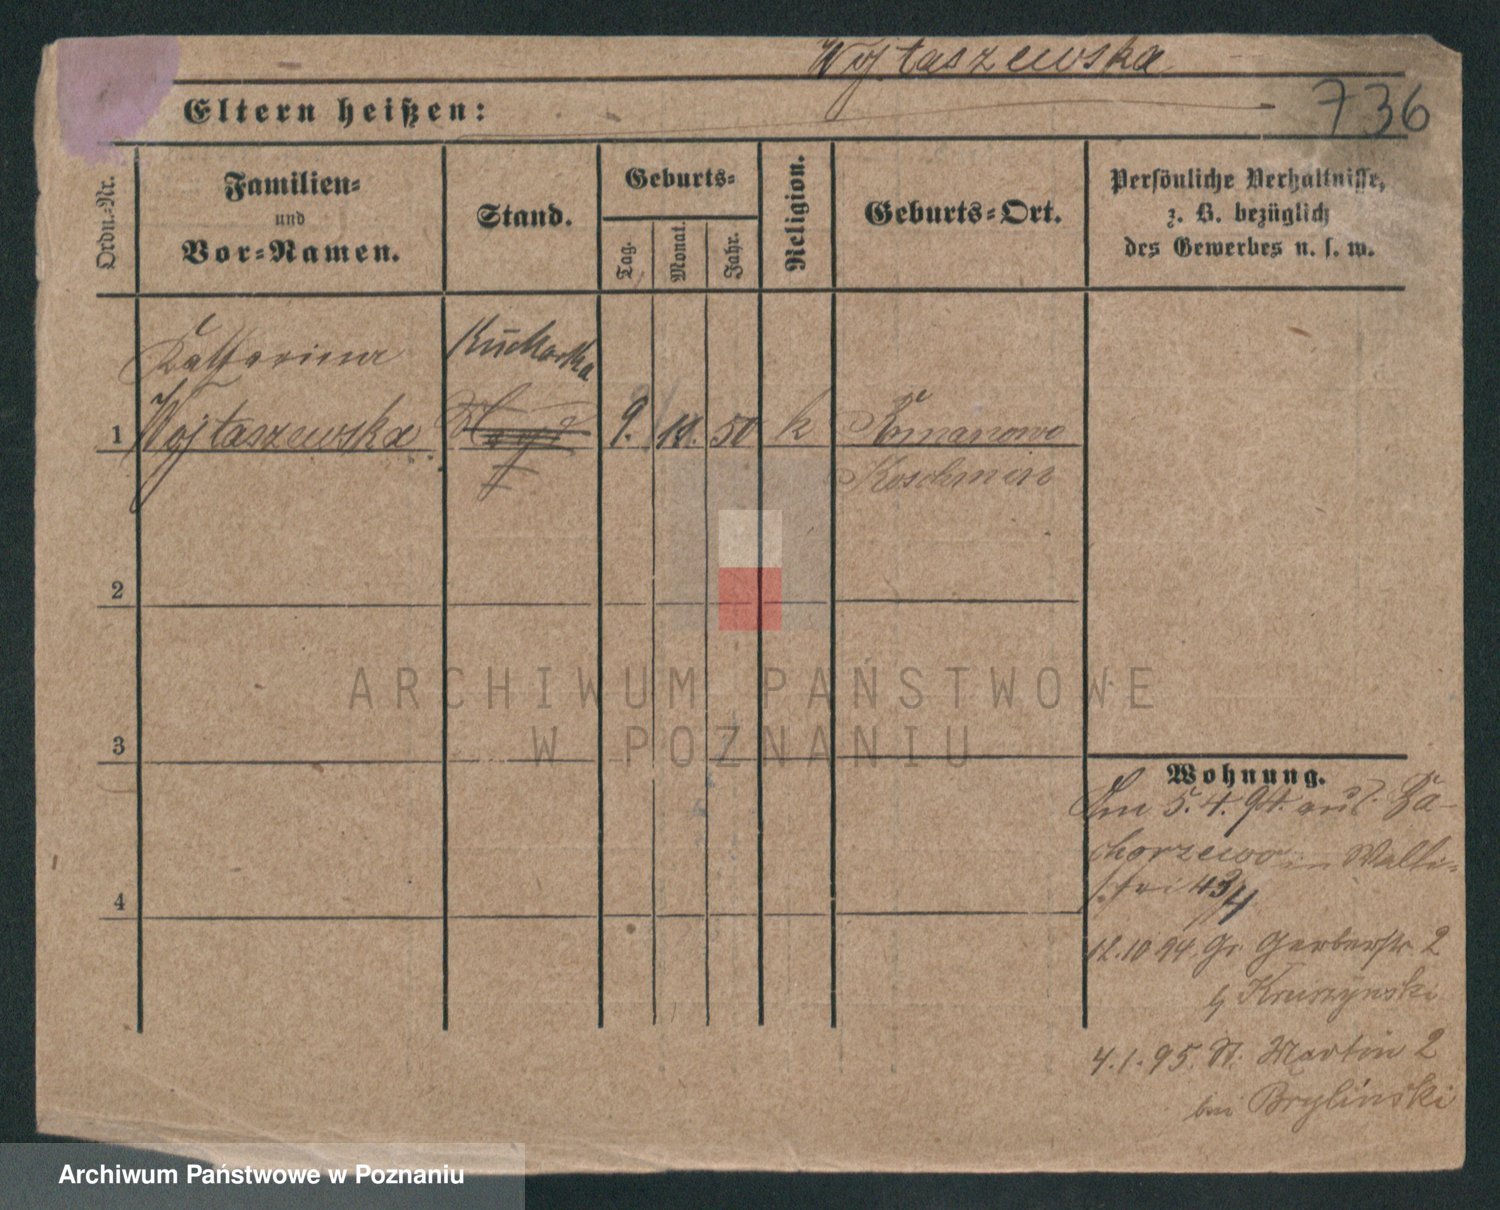 Wojtaszewska
736
Eltern heißen:
Ordn.-Nr.
Familien-
und
Vor-Namen.
Stand.
Geburts-
Tag.
Monat.
Jahr.
Religion.
Geburts-Ort.
Persönliche Verhältnisse,
z. B. bezüglich
des Gewerbes u. s. w.
Katharina
Kucharska
1 Wojtaszewska 9. 11. 50 k Romanowo
Koschmin
2
3
4
Wohnung.
Am 5.4.94. aus Za-
chorzewo Walli-
schei 43/4
12.10.94. Gr. Gerberstr. 2
b/ Kruszynski
4.1.95. St. Martin 2
bei Brylinski
ARCHIWUM PAŃSTWOWE
W POZNANIU
Archiwum Państwowe w Poznaniu